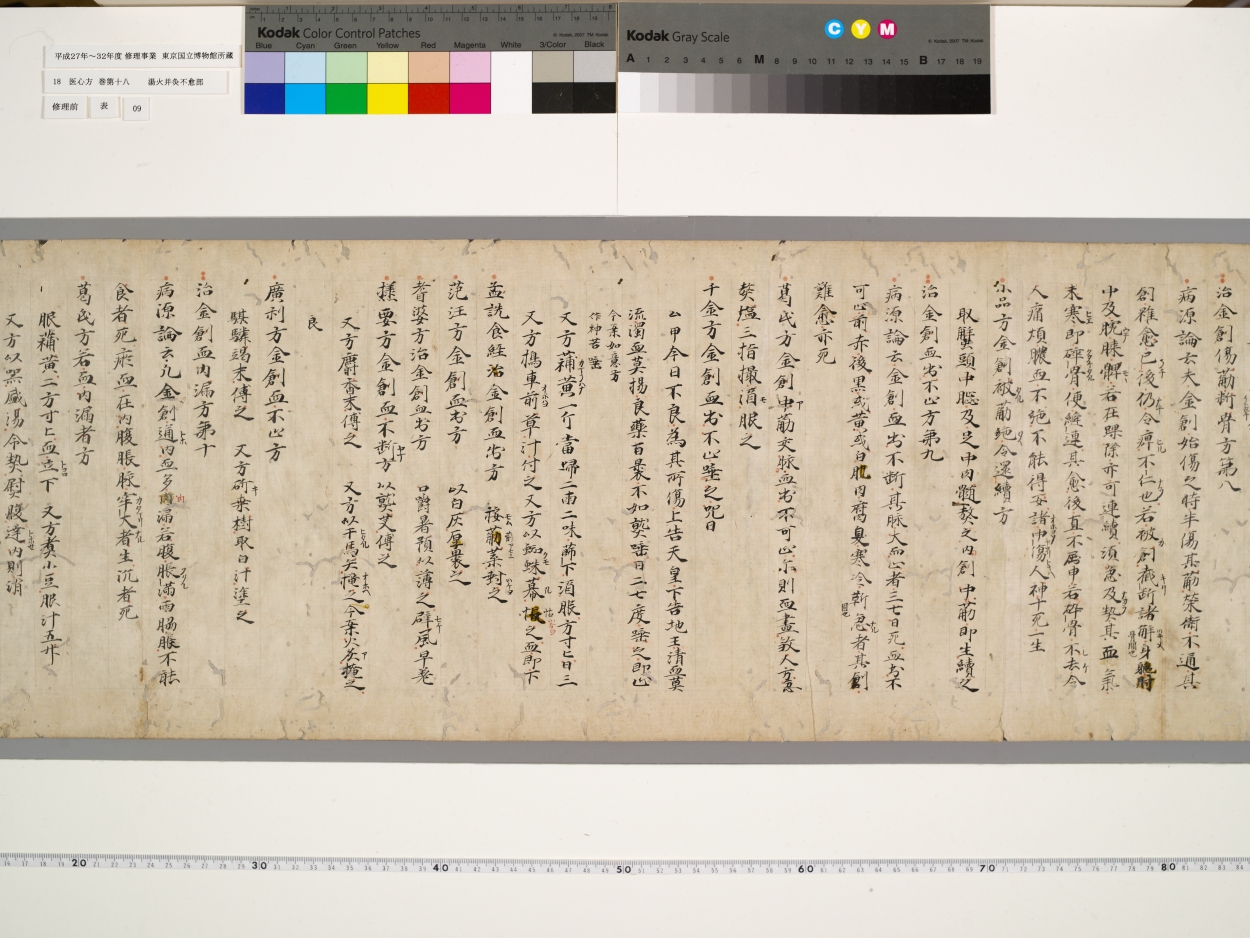 平成27年～32年度 修理事業 東京国立博物館所蔵
18 医心方 巻第十八 湯火并灸不愈部
修理前 表 09
Kodak Color Control Patches
© Kodak, 2007 TM: Kodak
Blue Cyan Green Yellow Red Magenta White 3/Color Black
Kodak Gray Scale
C Y M
© Kodak, 2007 TM: Kodak
A 1 2 3 4 5 6 M 8 9 10 11 12 13 14 15 B 17 18 19
治金創傷筋断骨方第八
病源論云夫金創始傷之時半傷其筋榮衛不通其
創雖愈已後仍令痺不仁也若被創截断諸解身軀肘
中及腕膝髀若在踝際亦可連續須急及熱其血氣
未寒即碎骨便縫連其愈後直不屈申若碎骨不去令
人痛煩膿血不絶不能得安諸中傷人神十死一生
小品方金創被筋絶令還續方
取蟹頭中脳及足中肉髄熬之内創中筋即生續之
治金創血出不止方第九
病源論云金創血出不断其脉大而止者三七日死血出不
可止前赤後黒或黄或白肌肉腐臭寒冷靳急者其創
難愈亦死
葛氏方金創中筋交脉血出不可止尓則血盡殺人方急
熬塩三指撮酒服之
千金方金創血出不止唾之咒曰
厶甲今日不良為某所傷上告天皇下告地王清血莫
流濁血莫揚良藥百裹不如熟唾日二七度唾之即止
今案如意方
作神苦唾
又方蒲黄一斤當歸二両二味篩下酒服方寸匕日三
又方搗車前草汁付之 又方以蜘蛛幕帳之血即下
孟詵食経治金創血出方 按葱葉封之
范汪方金創血出方 以白灰厚裹之
耆婆方治金創血出方 口嚼薯預以薄之辟風早差
㨂要方金創血不断方 以熟艾傅之
又方麝香末傅之 又方以干馬矢掩之今案火炙掩之
良
廣利方金創血不止方
騏驎竭末傅之 又方斫桑樹取白汁塗之
治金創血内漏方第十
病源論云凡金創通内血多内漏若腹脹滿両脇脹不能
食者死瘀血在内腹脹脉牢大者生沉者死
葛氏方若血内漏者方
服蒲黄二方寸匕血立下 又方煮小豆服汁五升
又方以器盛湯令熱熨腹達内則消
20 30 40 50 60 70 80